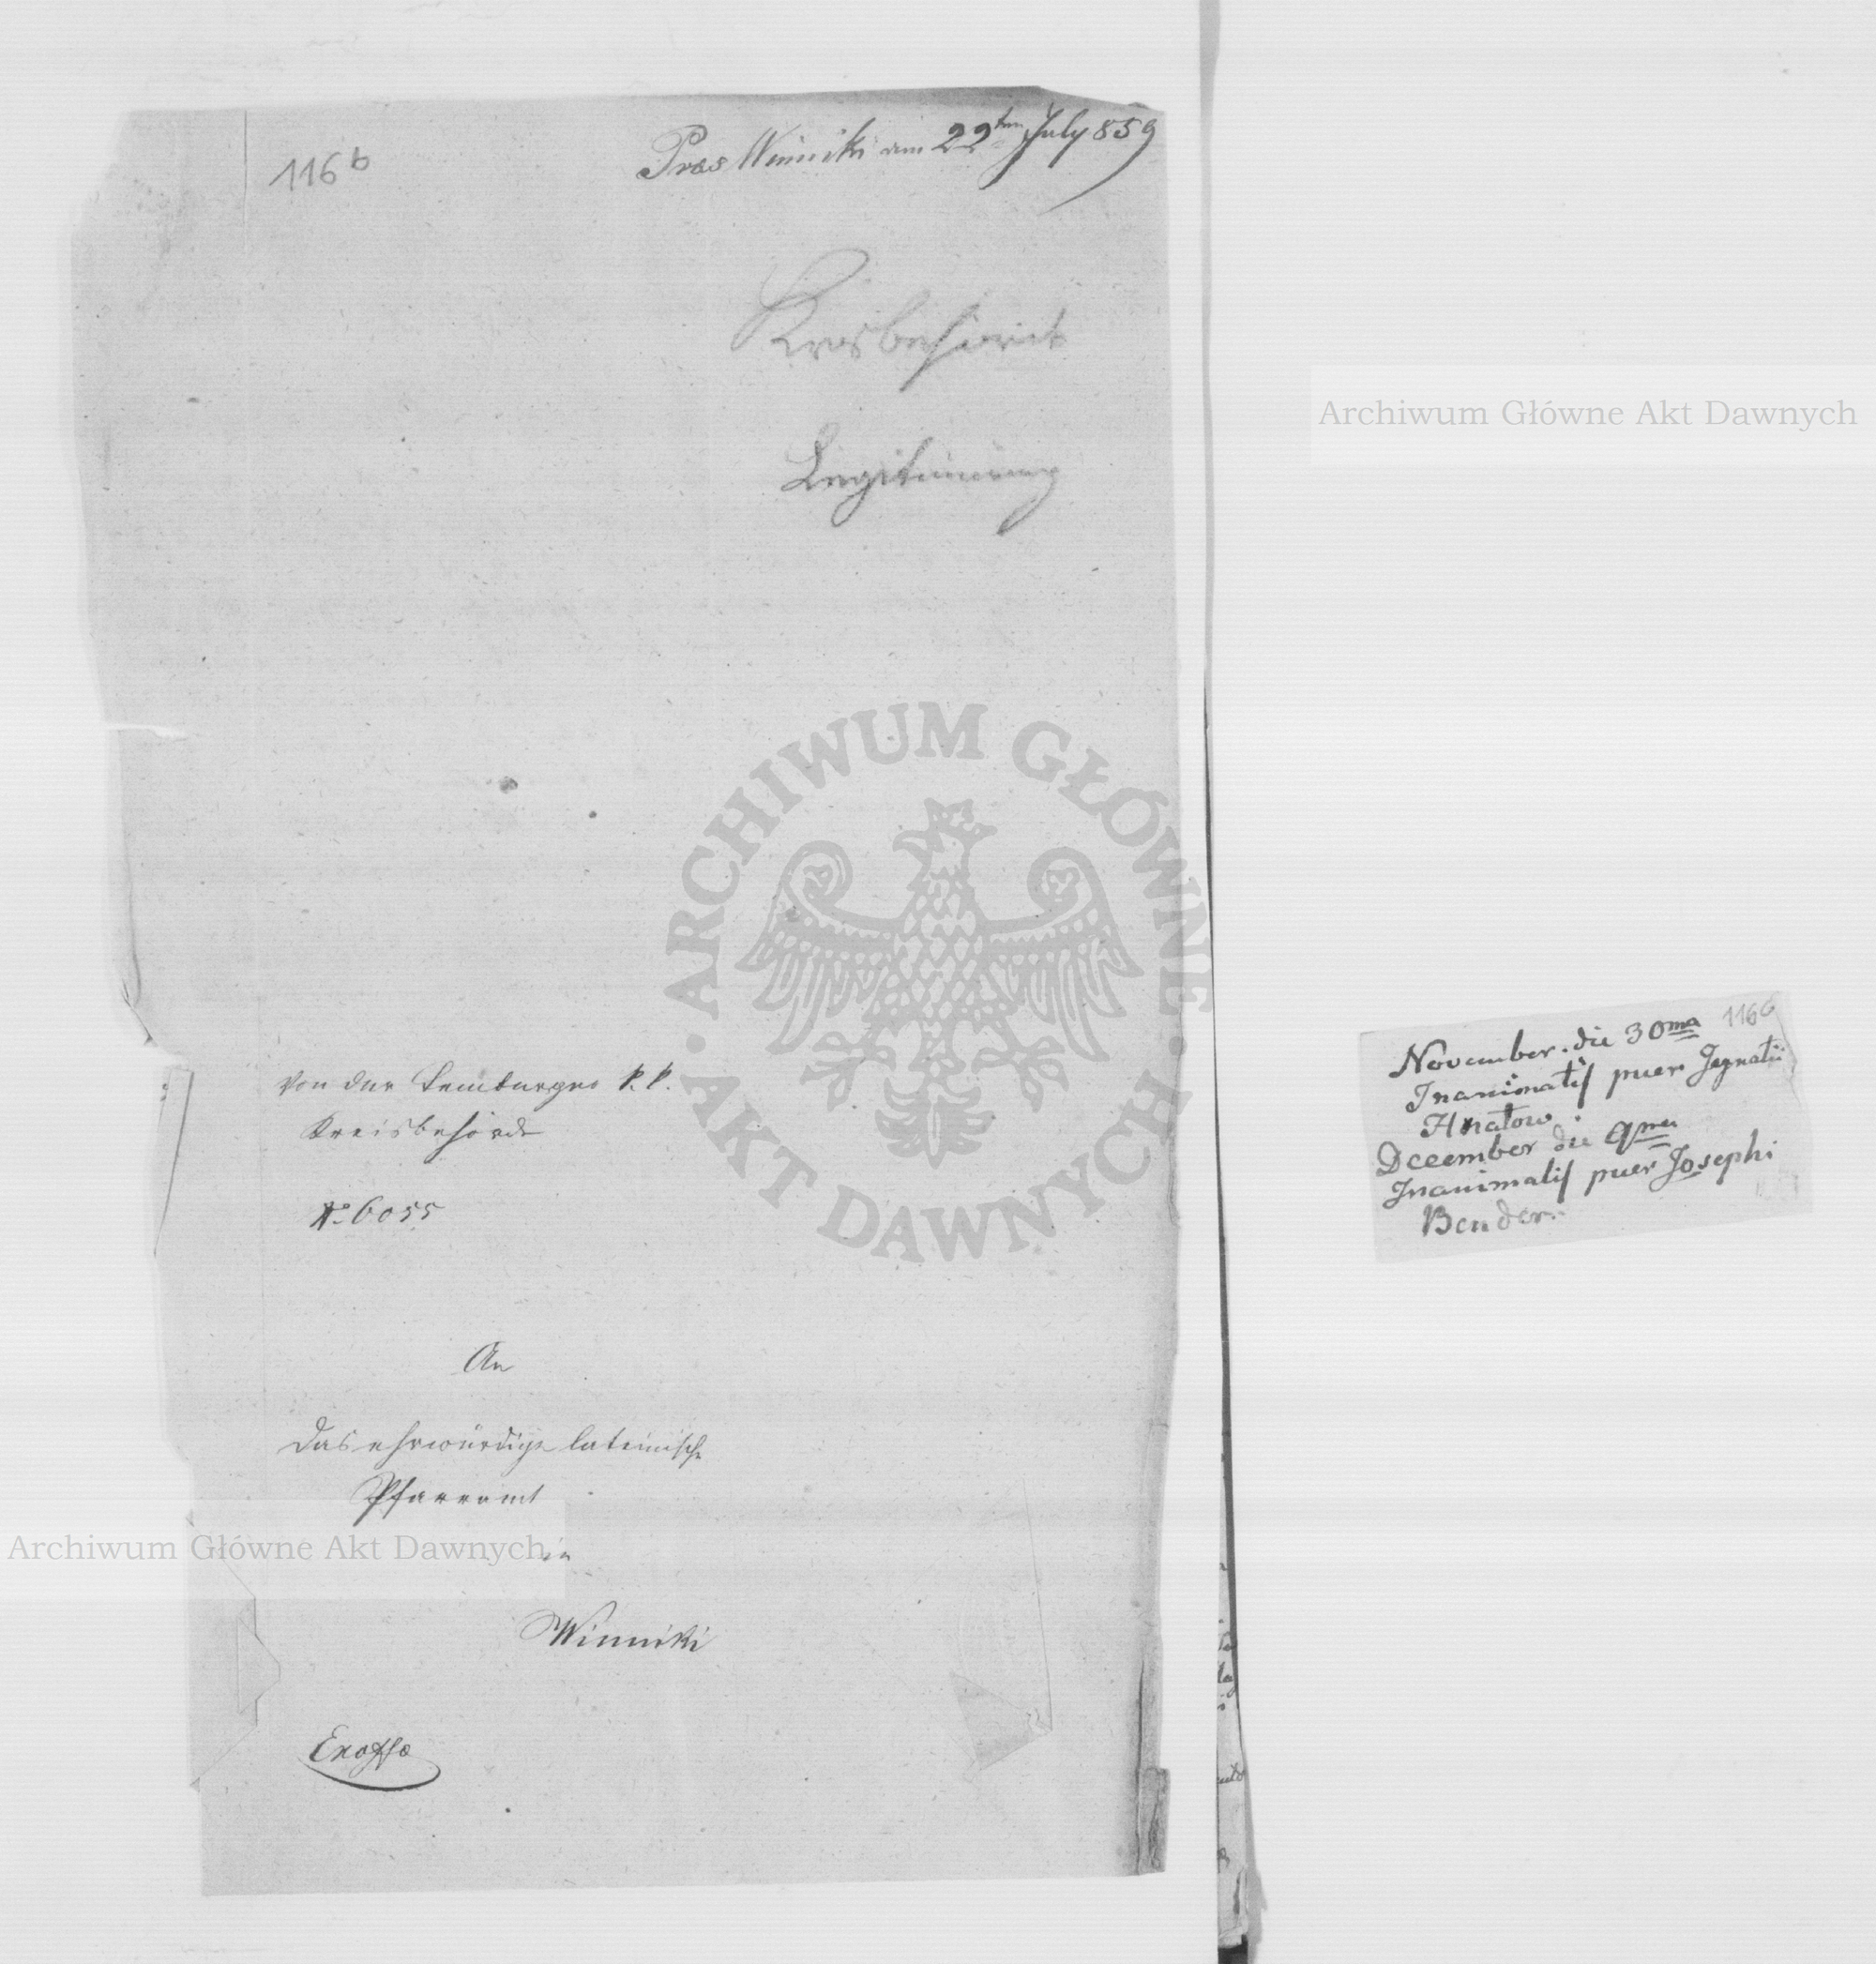 116b
Præs Winniki am 22ten July 859
Kreisbehörde
Legitimirung
Von der Lemberger k. k.
Kreisbehörde
No 6055
An
das ehrwürdige lateinische
Pfarramt
in
Winniki
Exoffo
1166
November. die 30ma
Inanimatis puer Jegnatii
Hnatow.
Dceember die 9ma
Inanimatis puer Josephi
Bender.
Archiwum Główne Akt Dawnych
Archiwum Główne Akt Dawnych
ARCHIWUM GŁÓWNE · AKT DAWNYCH ·